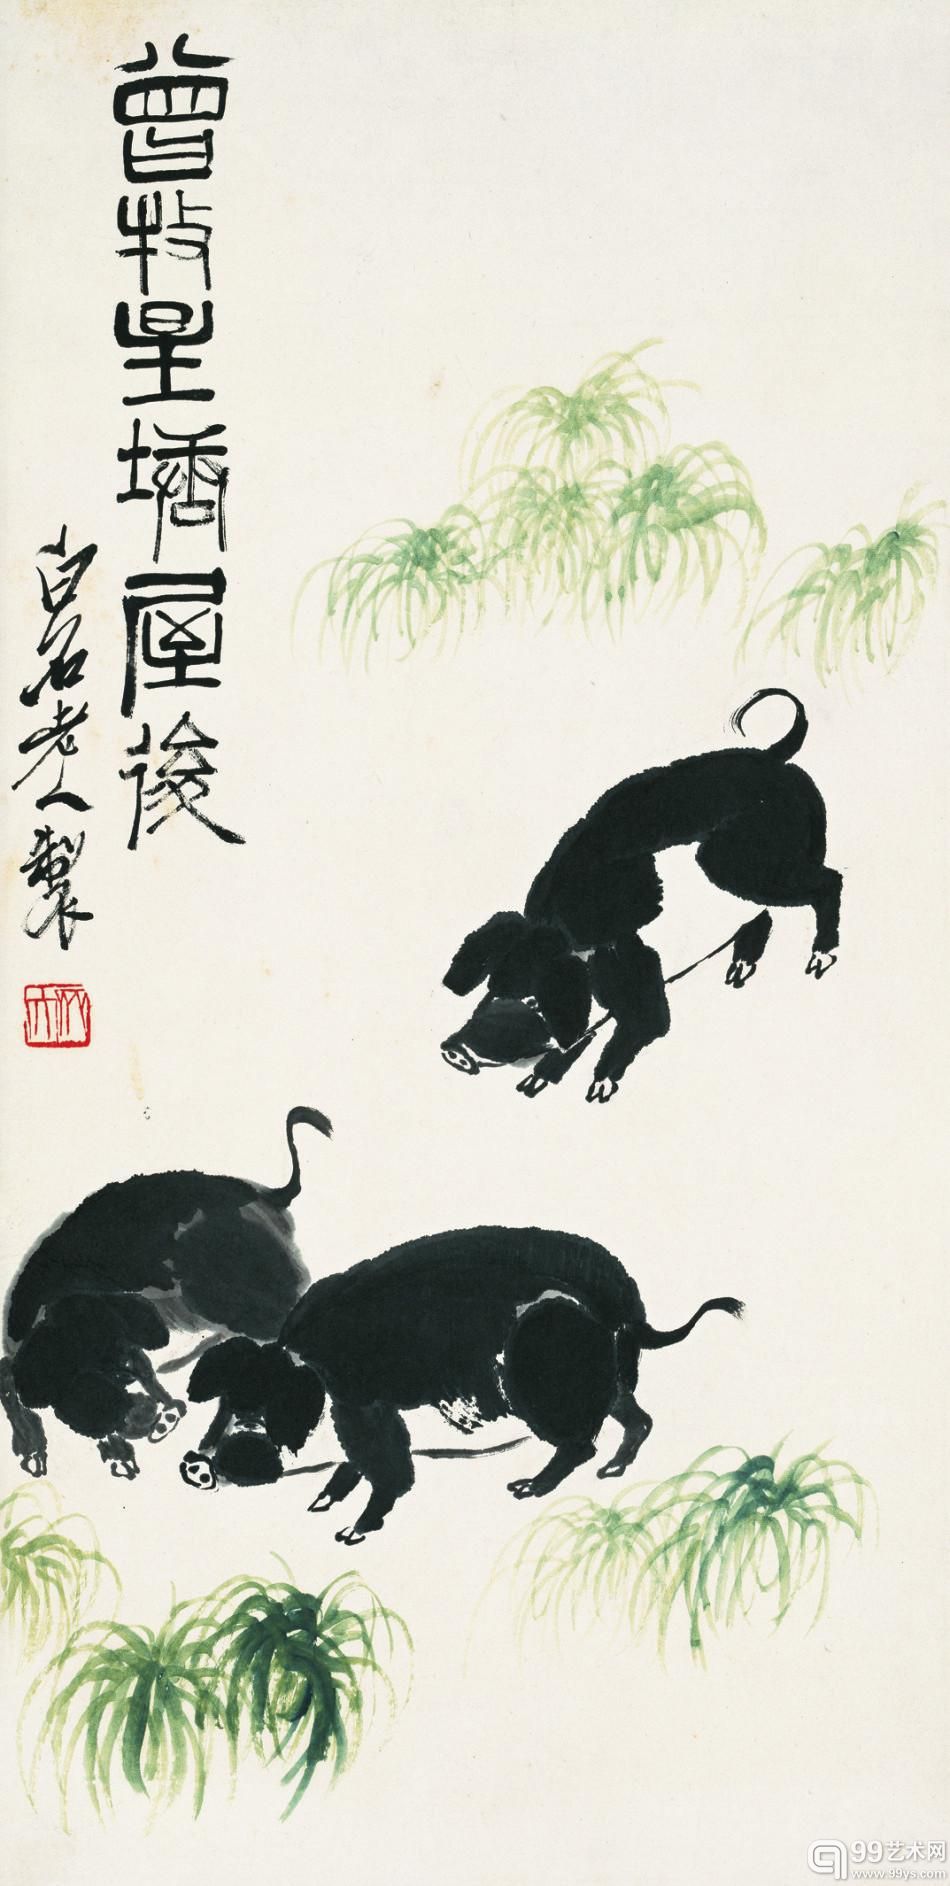 曾牧星塘屋後
白石老人製
99艺术网
www.99ys.com